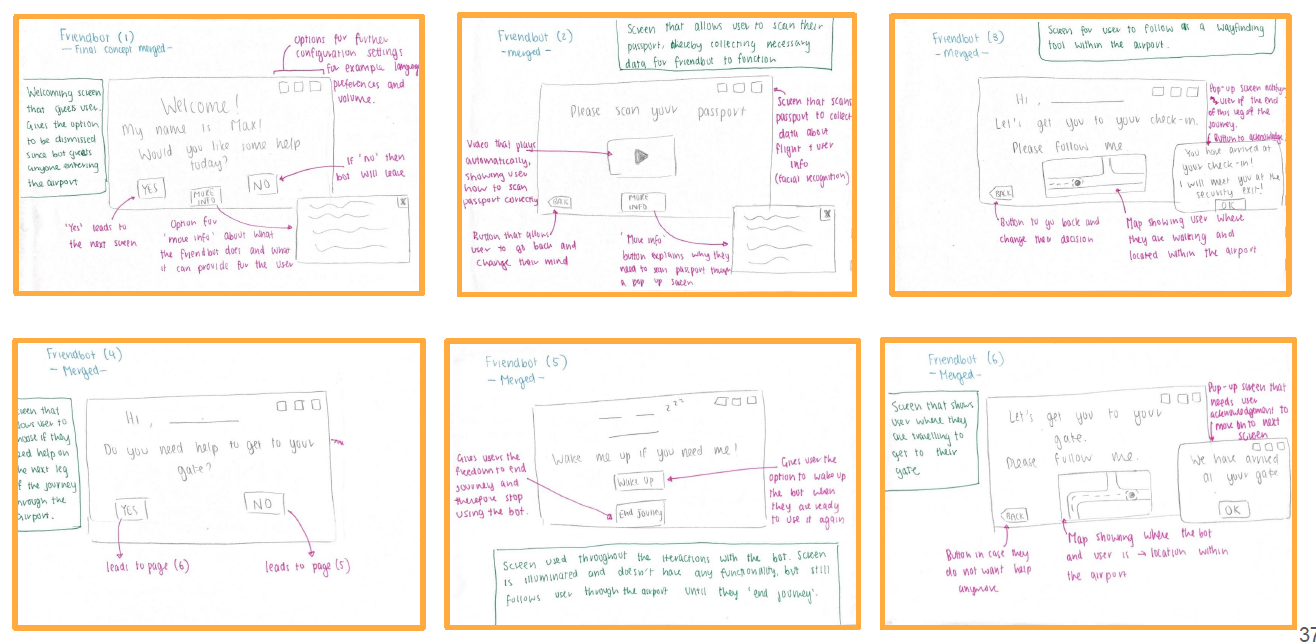 Friendbot (1)
- Final concept merged -
options for further
configuration settings
for example language
preferences and
volume.
Welcoming screen
that guess user.
Gives the option
to be dismissed
since bot guess
anyone entering
the airport
Welcome!
My name is Max!
Would you like some help
today?
YES
MORE
INFO
NO
If 'no' then
bot will leave
'Yes' leads to
the next screen
Option for
'more info' about what
the friendbot does and what
it can provide for the user
x
Friendbot (2)
- merged -
Screen that allows user to scan their
passport, thereby collecting necessary
data for friendbot to function
Please scan your passport
Video that plays
automatically,
showing user
how to scan
passport correctly
BACK
MORE
INFO
Screen that scans
passport to collect
data about
flight + user
info
(facial recognition)
Button that allows
user to go back and
change their mind
'More info'
button explains why they
need to scan passport
a pop up screen
x
Friendbot (3)
- Merged -
Screen for user to follow as a wayfinding
tool within the airport.
Hi, ________
Let's get you to your check-in.
Please follow me
BACK
Pop-up screen
user of the end
of this leg of the
journey.
Button to acknowledge
You have arrived at
your check-in!
I will meet you at the
security exit!
OK
Button to go back and
change their decision
Map showing user where
they are walking and
located within the airport
Friendbot (4)
- Merged -
Hi, ________.
Do you need help to get to your
gate?
YES
NO
leads to page (6)
leads to page (5)
screen that
user to
if they
help on
next leg
the journey
through the
airport.
Friendbot (5)
- Merged -
zzz
Wake me up if you need me!
Wake Up
End Journey
Gives users the
freedom to end
journey and
therefore stop
using the bot.
Gives user the
option to wake up
the bot when
they are ready
to use it again
Screen used throughout the iteractions with the bot. Screen
is illuminated and doesn't have any functionality, but still
follows user through the airport until they 'end journey'.
Friendbot (6)
- Merged -
Screen that shows
user where they
are travelling to
get to their
gate
Let's get you to your
gate.
Please follow me.
BACK
Pop-up screen that
needs user
acknowledgement to
move on to next
screen
We have arrived
at your gate
OK
Button in case they
do not want help
anymore
Map showing where the bot
and user is → location within
the airport
37